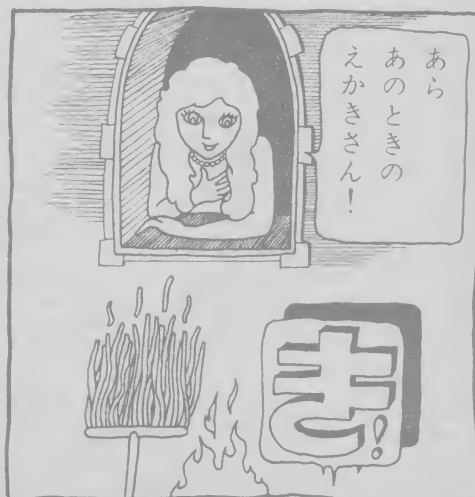 あら
あのときの
えかきさん!
き!